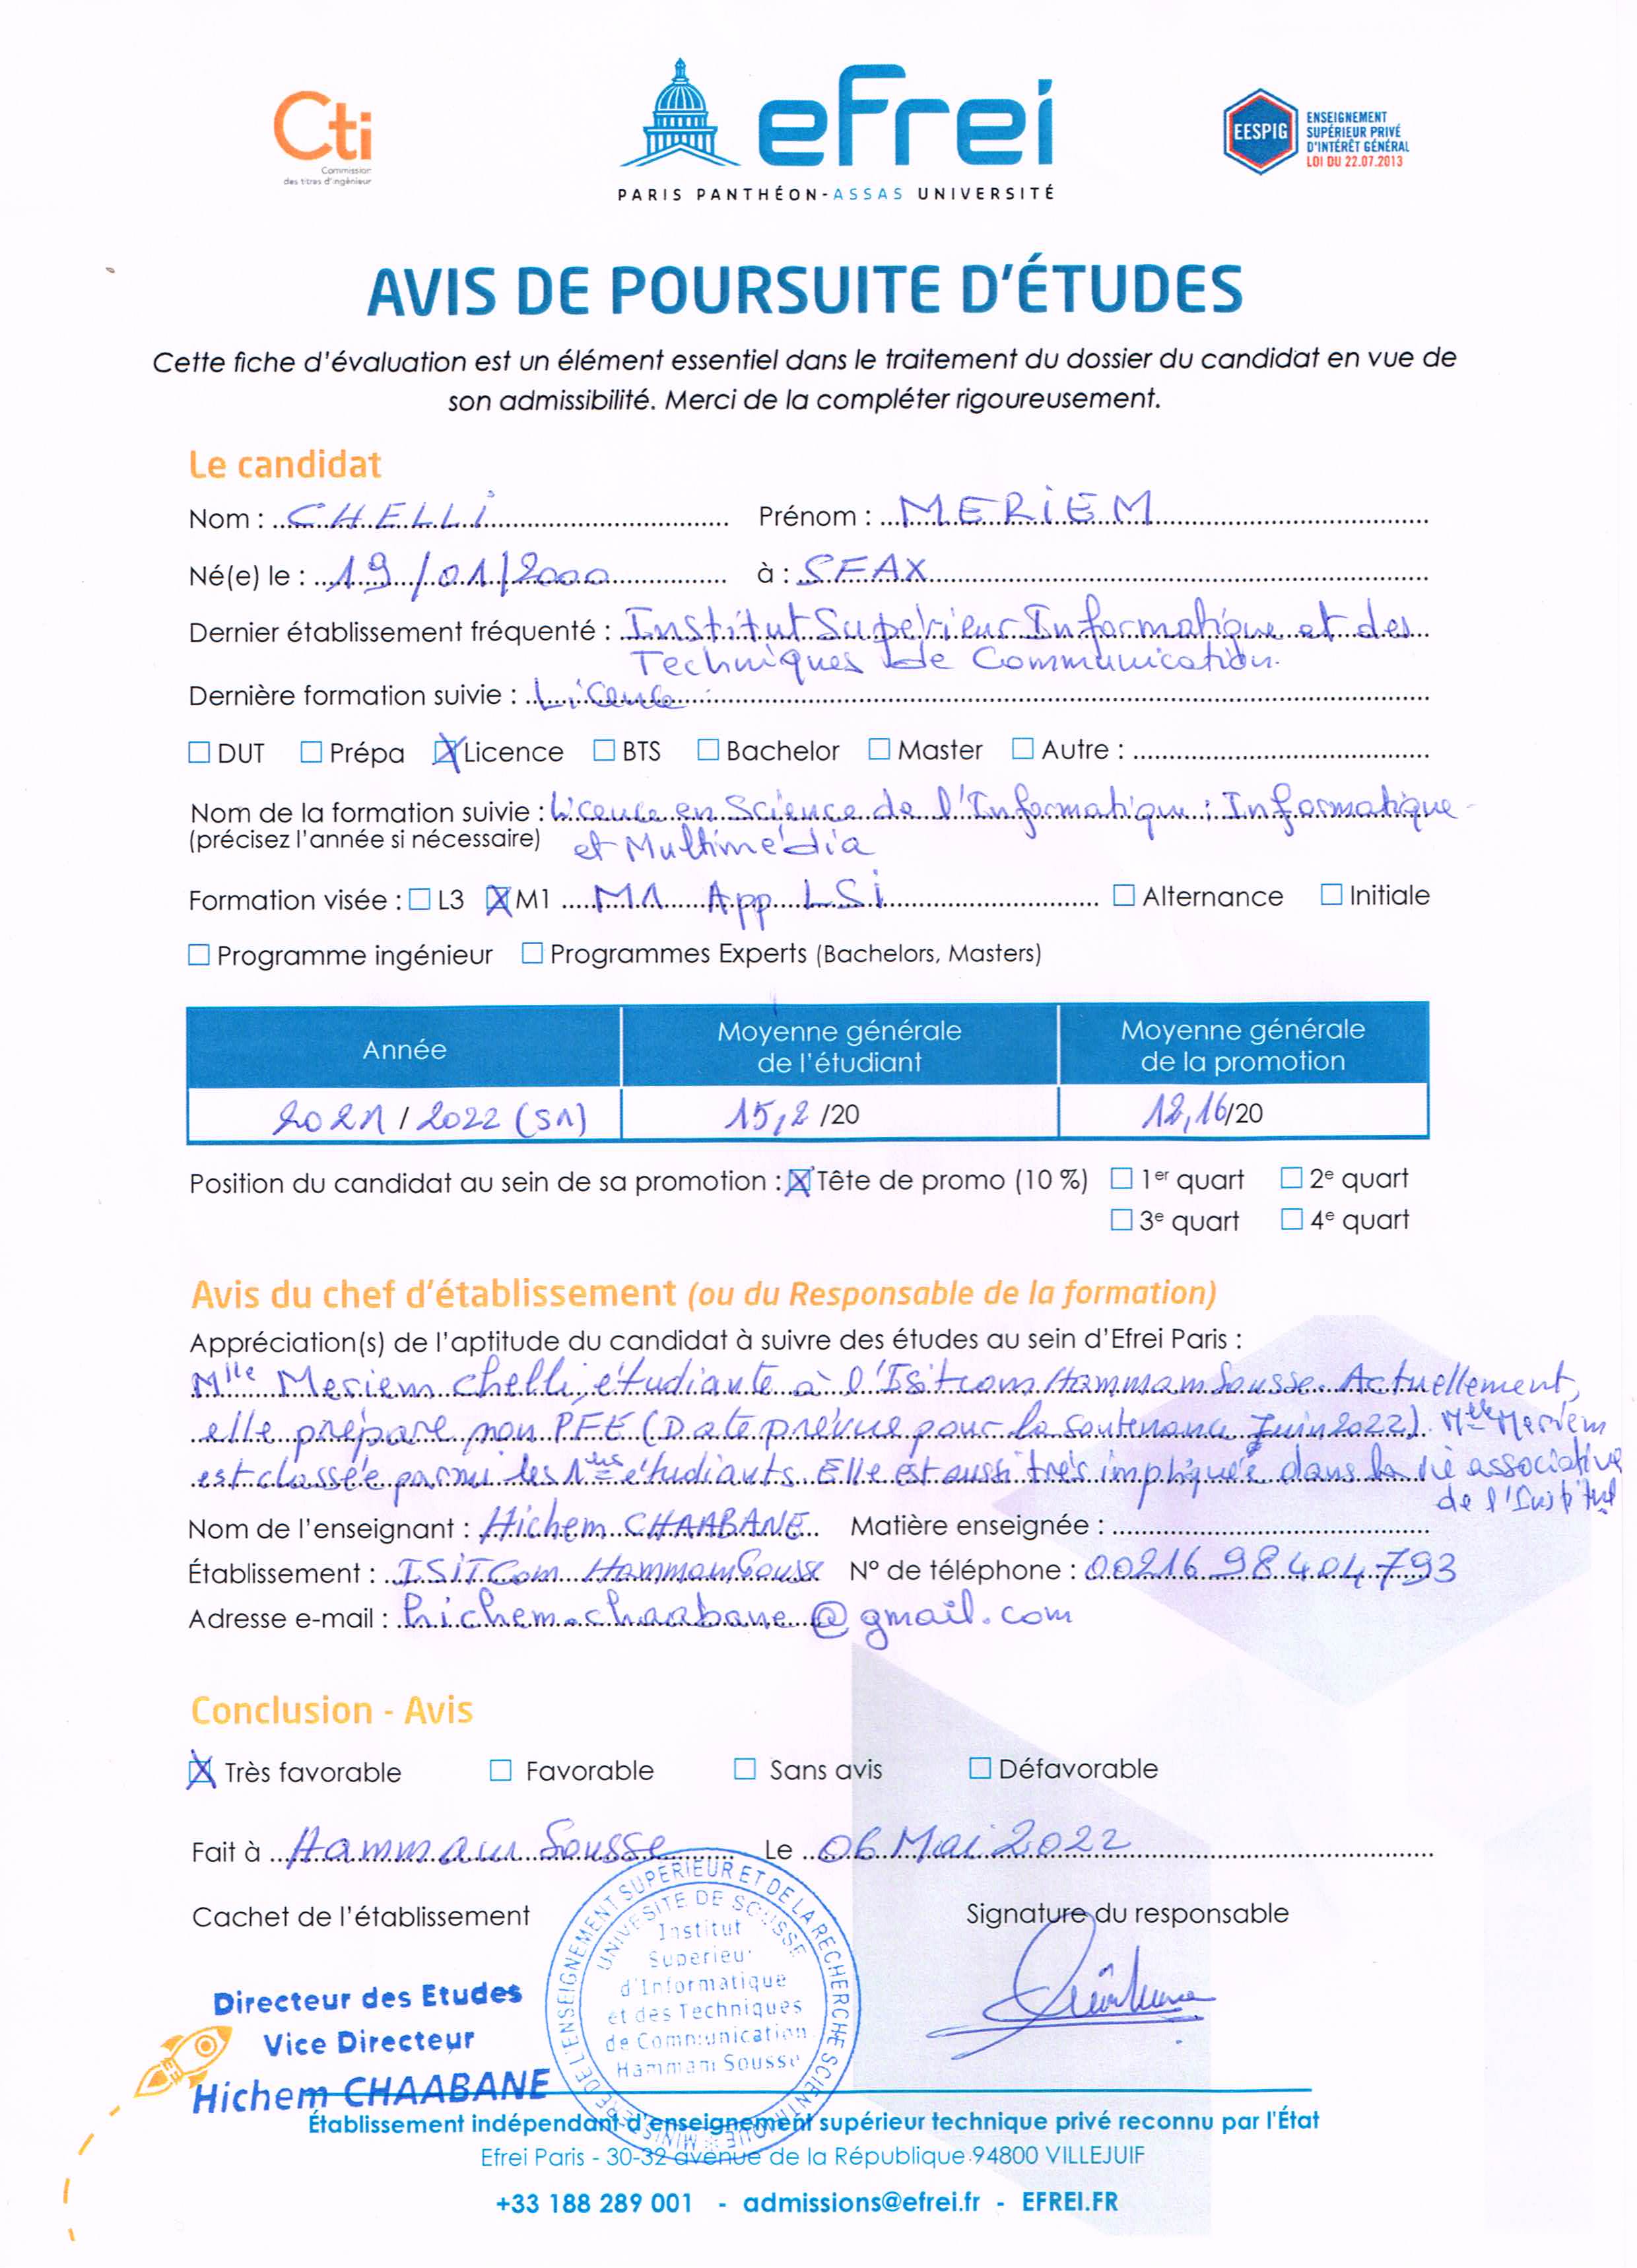 Cti
Commission
des titres d'ingénieur
efrei
PARIS PANTHÉON-ASSAS UNIVERSITÉ
EESPIG
ENSEIGNEMENT
SUPÉRIEUR PRIVÉ
D'INTÉRÊT GÉNÉRAL
LOI DU 22.07.2013
AVIS DE POURSUITE D'ÉTUDES
Cette fiche d'évaluation est un élément essentiel dans le traitement du dossier du candidat en vue de
son admissibilité. Merci de la compléter rigoureusement.
Le candidat
Nom : CHELLI Prénom : MERIEM
Né(e) le : 19/01/2000 à : SFAX
Dernier établissement fréquenté : Institut Supérieur Informatique et des
Techniques de Communication.
Dernière formation suivie : Licence
☐ DUT ☐ Prépa ☒ Licence ☐ BTS ☐ Bachelor ☐ Master ☐ Autre :
Nom de la formation suivie : Licence en Science de l'Informatique : Informatique
(précisez l'année si nécessaire) et Multimédia
Formation visée : ☐ L3 ☒ M1 M1 App LSI ☐ Alternance ☐ Initiale
☐ Programme ingénieur ☐ Programmes Experts (Bachelors, Masters)
Année Moyenne générale de l'étudiant Moyenne générale de la promotion
2021 / 2022 (S1) 15,2 /20 12,16/20
Position du candidat au sein de sa promotion : ☒ Tête de promo (10 %) ☐ 1er quart ☐ 2e quart
☐ 3e quart ☐ 4e quart
Avis du chef d'établissement (ou du Responsable de la formation)
Appréciation(s) de l'aptitude du candidat à suivre des études au sein d'Efrei Paris :
Mlle Meriem Chelli, étudiante à l'Isitcom Hammam Sousse. Actuellement,
elle prépare son PFE (Date prévue pour la soutenance Juin 2022). Mlle Meriem
est classée parmi les 1ers étudiants. Elle est aussi très impliquée dans la vie associative
de l'Institut
Nom de l'enseignant : Hichem CHAABANE Matière enseignée :
Établissement : ISITCom Hammam Sousse N° de téléphone : 00216 98 404 793
Adresse e-mail : hichem.chaabane@gmail.com
Conclusion - Avis
☒ Très favorable ☐ Favorable ☐ Sans avis ☐ Défavorable
Fait à Hammam Sousse Le 06 Mai 2022
Cachet de l'établissement Signature du responsable
MINISTERE DE L'ENSEIGNEMENT SUPERIEUR ET DE LA RECHERCHE SCIENTIFIQUE
UNIVERSITE DE SOUSSE
Institut
Superieur
d'Informatique
et des Techniques
de Communication
Hammam Sousse
Directeur des Etudes
Vice Directeur
Hichem CHAABANE
Établissement indépendant d'enseignement supérieur technique privé reconnu par l'État
Efrei Paris - 30-32 avenue de la République 94800 VILLEJUIF
+33 188 289 001 - admissions@efrei.fr - EFREI.FR